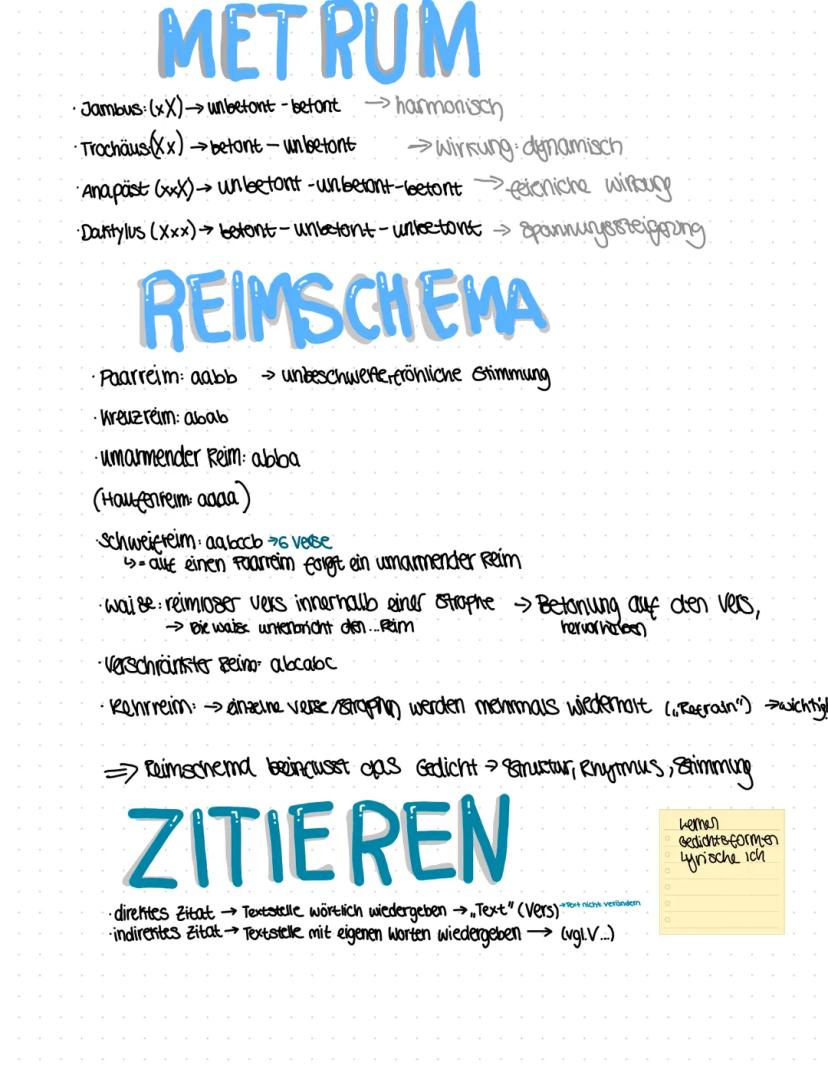 METRUM
· Jambus: (xX) → unbetont - betont → harmonisch
· Trochäus (Xx) → betont - unbetont → Wirkung: dynamisch
· Anapäst (xxX) → unbetont - unbetont - betont → feierliche wirkung
· Daktylus (Xxx) → betont - unbetont - unbetont → Spannungssteigerung
REIMSCHEMA
· Paarreim: aabb → unbeschwerte, fröhliche Stimmung
· Kreuzreim: abab
· umarmender Reim: abba
(Haufenreim: aaaa)
· Schweifreim: aabccb → 6 Verse
↳ = auf einen Paarreim folgt ein umarmender Reim
· Waise: reimloser Vers innerhalb einer Strophe → Betonung auf den Vers,
→ Die Waise unterbricht den ... Reim hervorheben
· Verschränkter Reim: abcabc
· Kehrreim: → einzelne Verse /Strophen werden mehrmals wiederholt („Refrain") →
⇒ Reimschema beinflusst das Gedicht → Struktur, Rhytmus, Stimmung
ZITIEREN
Lernen
Gedichtsformen
Lyrische Ich
· direktes Zitat → Textstelle wörtlich wiedergeben → „Text" (Vers) → Text nicht verändern
· indirektes Zitat → Textstelle mit eigenen Worten wiedergeben → (vgl. V...)